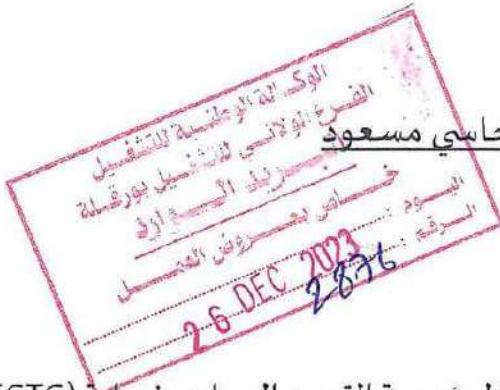 الوكالة الوطنية للتشغيل
الفرع الولائي للتشغيل بورقلة
بريد الوارد
خاص بعروض العمل
اليوم :
26 DEC 2023
الرقم :
2876
حاسي مسعود
(STS)